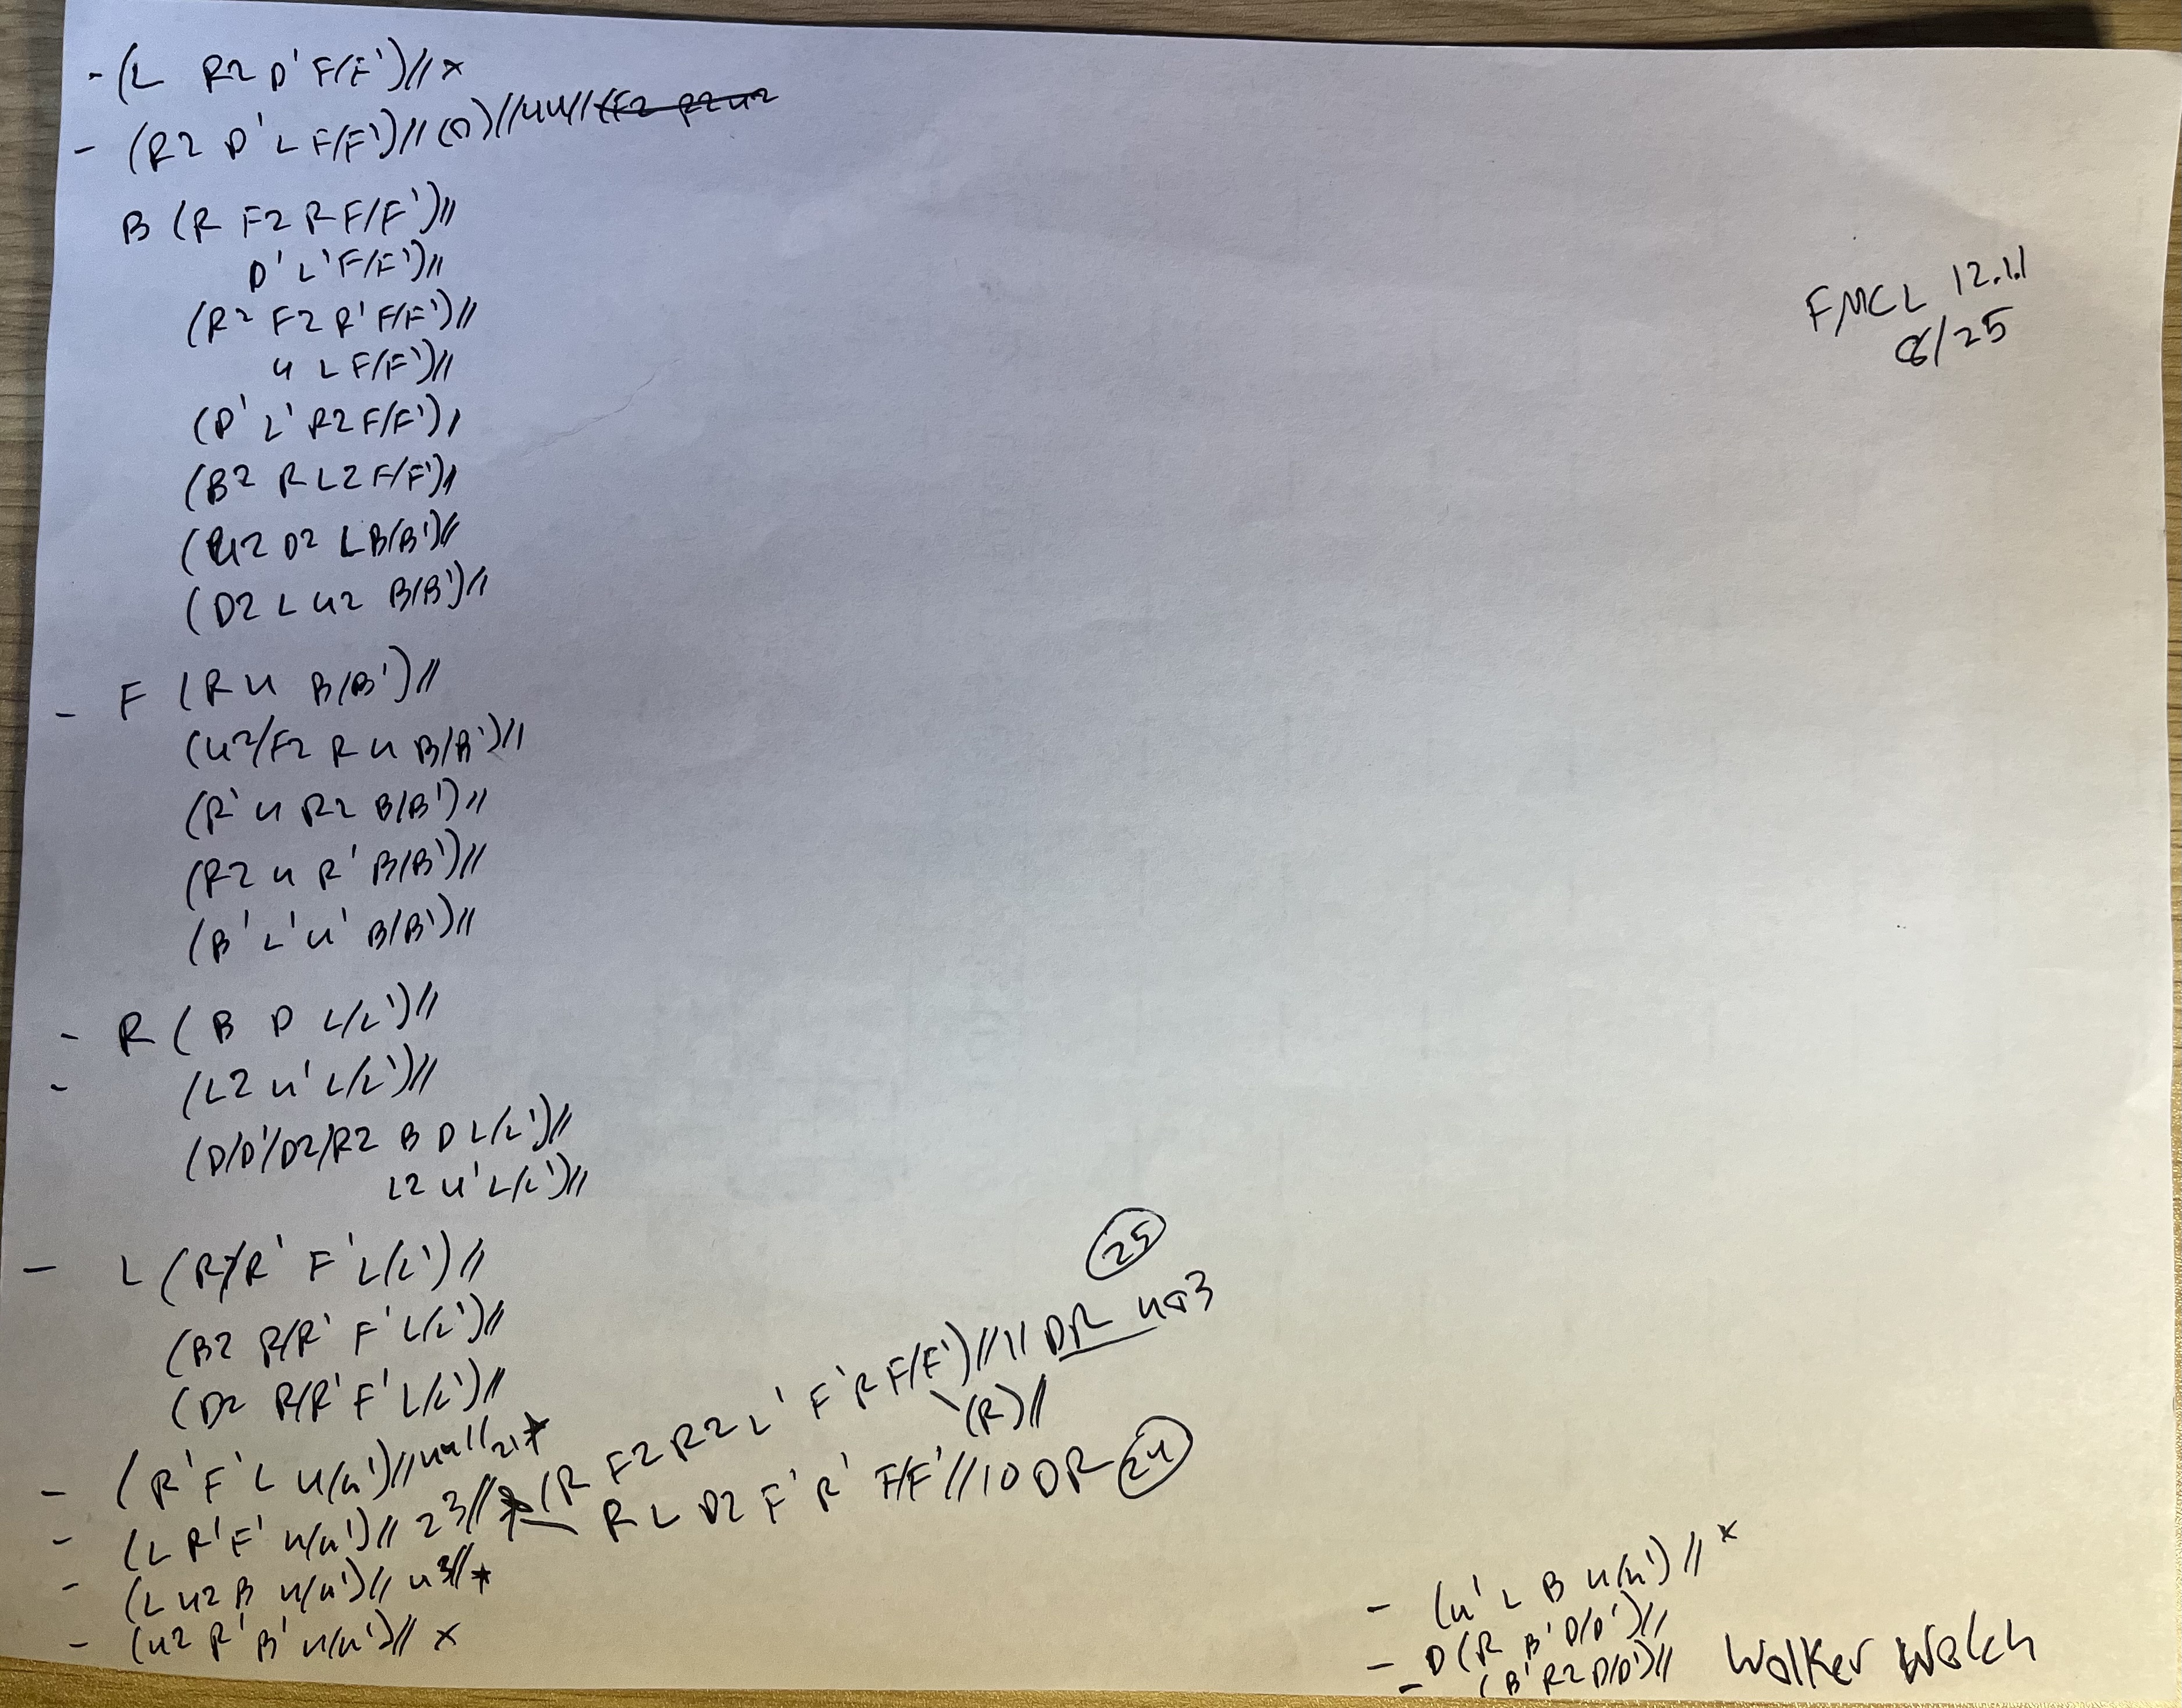 - (L R2 D' F/F')// x
- (R2 D' L F/F')// (0)//44//(F2 R2 U2
B (R F2 R F/F')//
D' L' F/F')//
(R2 F2 R' F/F')//
U L F/F')//
(D' L' R2 F/F')/
(B2 R L2 F/F')/
(U2 D2 L B/B')//
(D2 L U2 B/B')//
- F (R U B/B')//
(U2/F2 R U B/B')//
(R' U R2 B/B')//
(R2 U R' B/B')//
(B' L' U' B/B')//
- R (B D L/L')//
- (L2 U' L/L')//
(D/D'/D2/R2 B D L/L')//
L2 U' L/L')//
- L (R/R' F' L/L')//
(B2 R/R' F' L/L')//
(D2 R/R' F' L/L')//
- (R' F' L U/U')//44//21*
- (L R' F' U/U')// 23//* (R F2 R2 L' F' R F/F')//11 DR 4a3 25
\(R)//
R L D2 F' R' F/F'//10 DR 24
- (L U2 B U/U')// 43//*
- (U2 R' B' U/U')// x
FMCL 12.1.1
8/25
- (U' L B U/U')// x
- D (R B' D/D')//
- (B' R2 D/D')//
Walker Welch